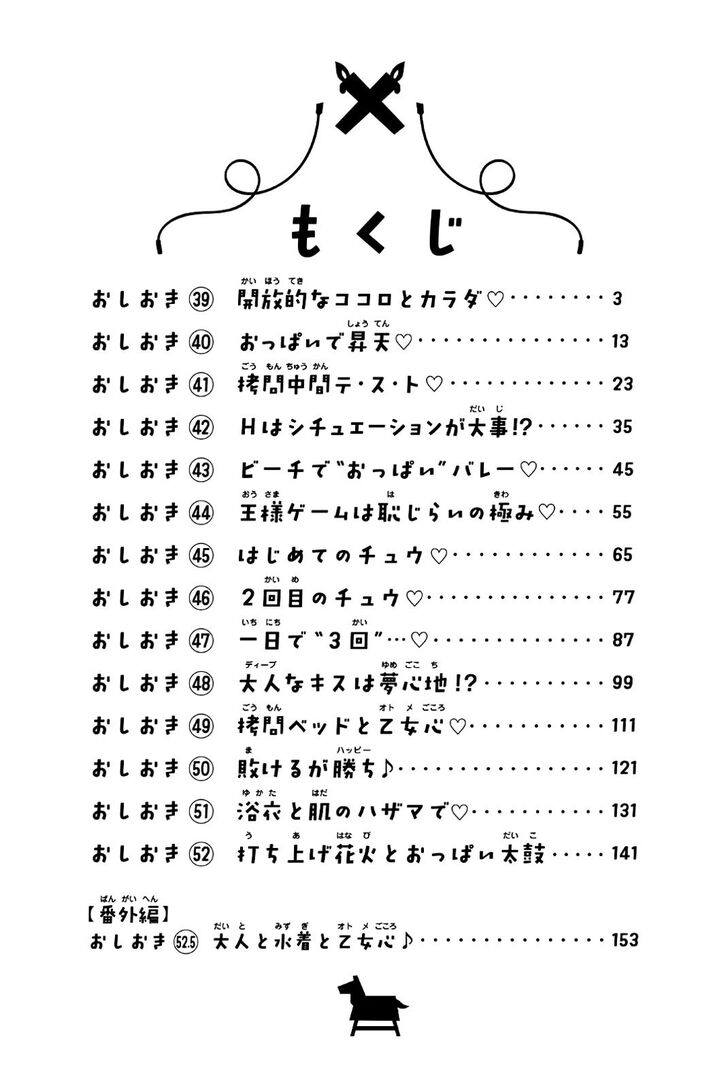 もくじ
おしおき㊴ 開放的なココロとカラダ♡‥‥‥‥3
おしおき㊵ おっぱいで昇天♡‥‥‥‥‥‥‥13
おしおき㊶ 拷問中間テ・ス・ト♡‥‥‥‥‥‥23
おしおき㊷ Hはシチュエーションが大事!?‥‥‥35
おしおき㊸ ビーチで“おっぱい”バレー♡‥‥‥45
おしおき㊹ 王様ゲームは恥じらいの極み♡‥‥55
おしおき㊺ はじめてのチュウ♡‥‥‥‥‥‥65
おしおき㊻ 2回目のチュウ♡‥‥‥‥‥‥‥77
おしおき㊼ 一日で“3回”…♡‥‥‥‥‥‥‥87
おしおき㊽ 大人なキスは夢心地!?‥‥‥‥‥99
おしおき㊾ 拷問ベッドと乙女心♡‥‥‥‥‥111
おしおき㊿ 敗けるが勝ち♪‥‥‥‥‥‥‥‥121
おしおき(51) 浴衣と肌のハザマで♡‥‥‥‥‥131
おしおき(52) 打ち上げ花火とおっぱい太鼓‥‥‥141
【番外編】
おしおき(52.5) 大人と水着と乙女心♪‥‥‥‥‥‥‥153